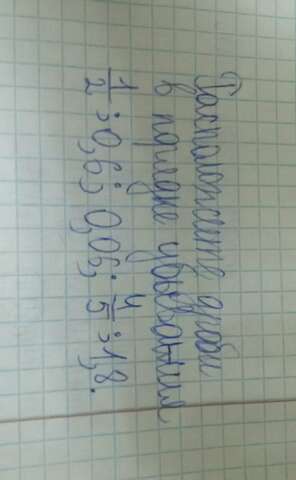 Расположите дроби
в порядке убывания
1/2; 0,6; 0,06; 4/5; 1,8.